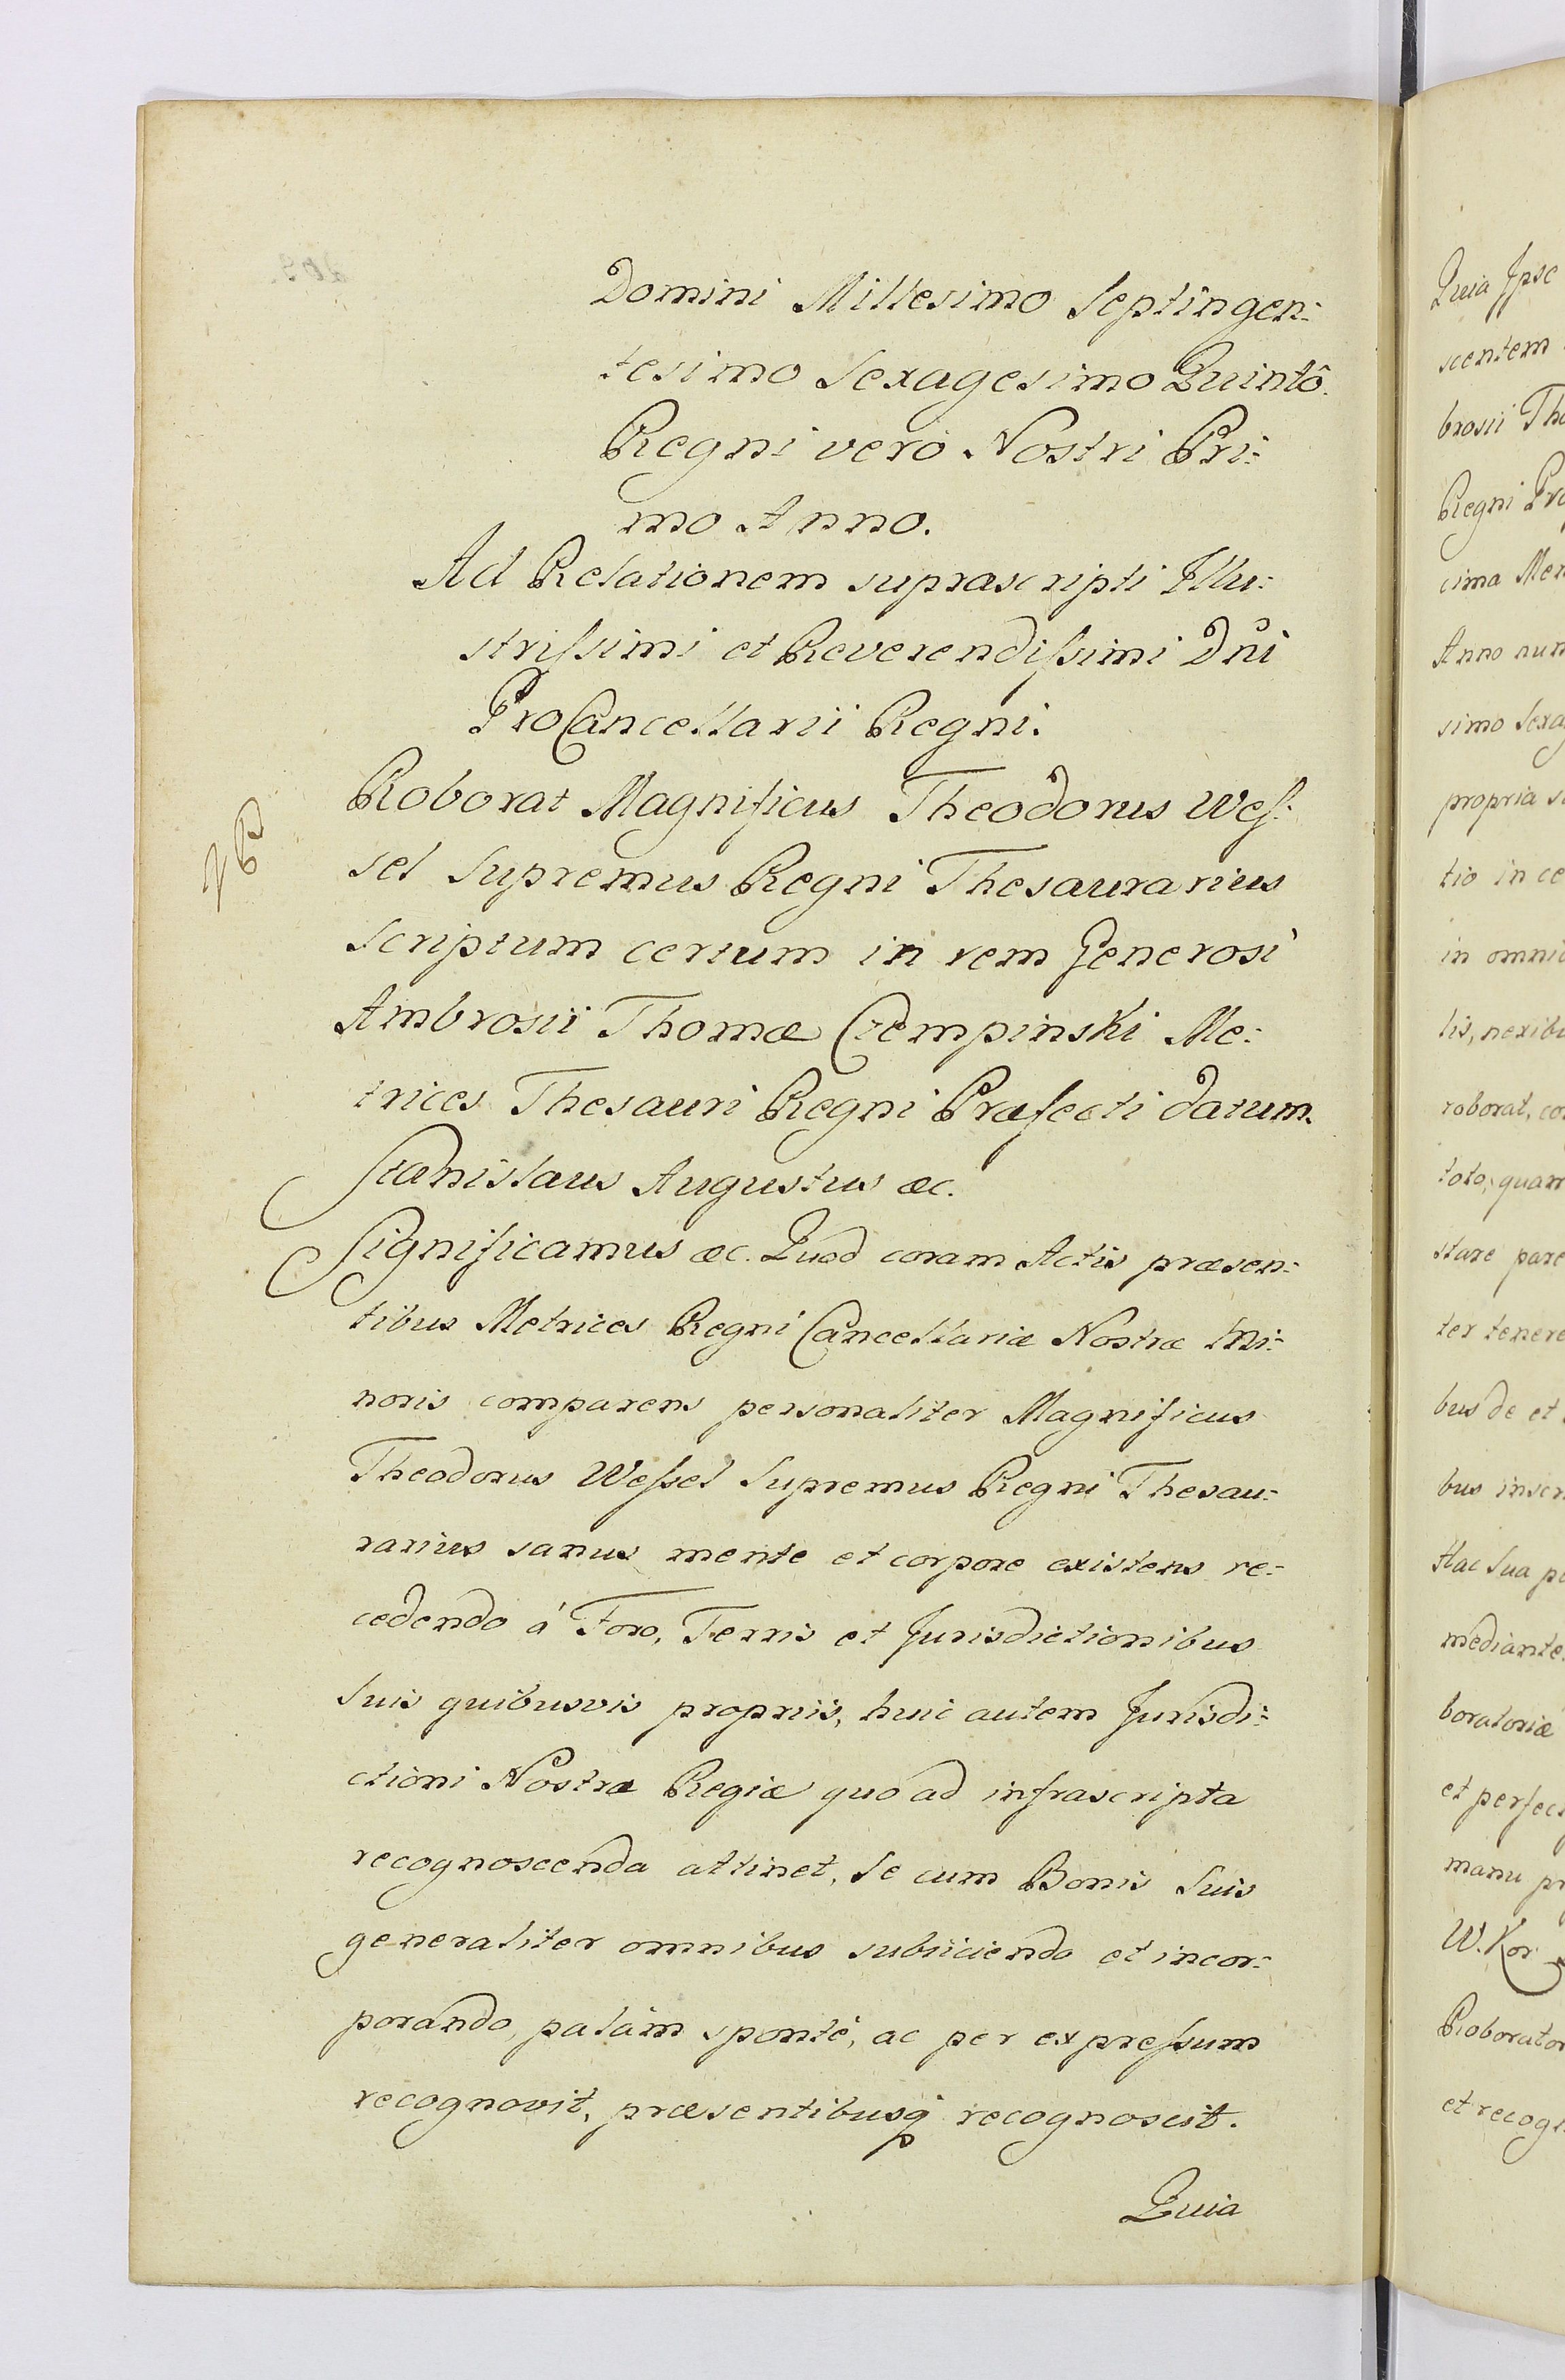 Domini Millesimo Septingen:
tesimo Sexagesimo Quintô.
Regni verò Nostri Pri:
mo Anno.
Ad Relationem suprascripti Illu:
strissimi et Reverendissimi Dni
ProCancellarii Regni.
Roborat Magnificus Theodorus Wes:
sel Supremus Regni Thesaurarius
Scriptum certum in rem Generosi
Ambrosii Thomæ Czempinski Me:
trices Thesauri Regni Præfecti datum.
Stanislaus Augustus æc.
Significamus æc. Quod coram Actis præsen:
tibus Metrices Regni Cancellariæ Nostræ Mi:
noris comparens personaliter Magnificus
Theodorus Wessel Supremus Regni Thesau:
rarius sanus mente et corpore existens re:
cedendo à Foro, Terris et Jurisdictionibus
Suis quibusvis propriis, huic autem Jurisdi:
ctioni Nostræ Regiæ quo ad infrascripta
recognoscenda attinet, Se cum Bonis Suis
generaliter omnibus subiiciendo et incor:
porando, palàm spontè, ac per expressum
recognovit, præsentibusq recognoscit.
Quia
Quia Ipse
scentem
brosii Tho
Regni Præ
cima Men
Anno nun
simo Sexa
propria s
tio in ce
in omni
lis, nexibu
roborat, co
toto, quam
stare pare
ter tenere
bus de et
bus inscr
Hac Sua p
mediante
boratoriæ
et perfec
manu pr
W. Kor
Roborator
et recog